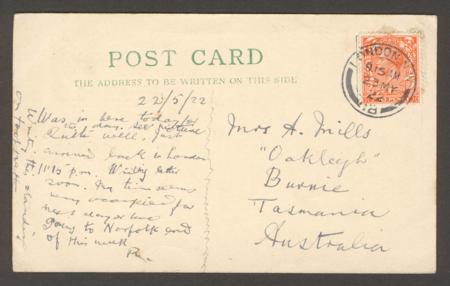 POST CARD
THE ADDRESS TO BE WRITTEN ON THIS SIDE
22/5/22
Was in here today for
Quite well. Just
arrived back in London
11:15 p.m. Writing letter
soon. My time seems
very occupied for
next day or two
Going to Norfolk end
of this week
Mrs A. Mills
"Oakleigh"
Burnie
Tasmania
Australia
LONDON
9.15 AM
23 MY
22